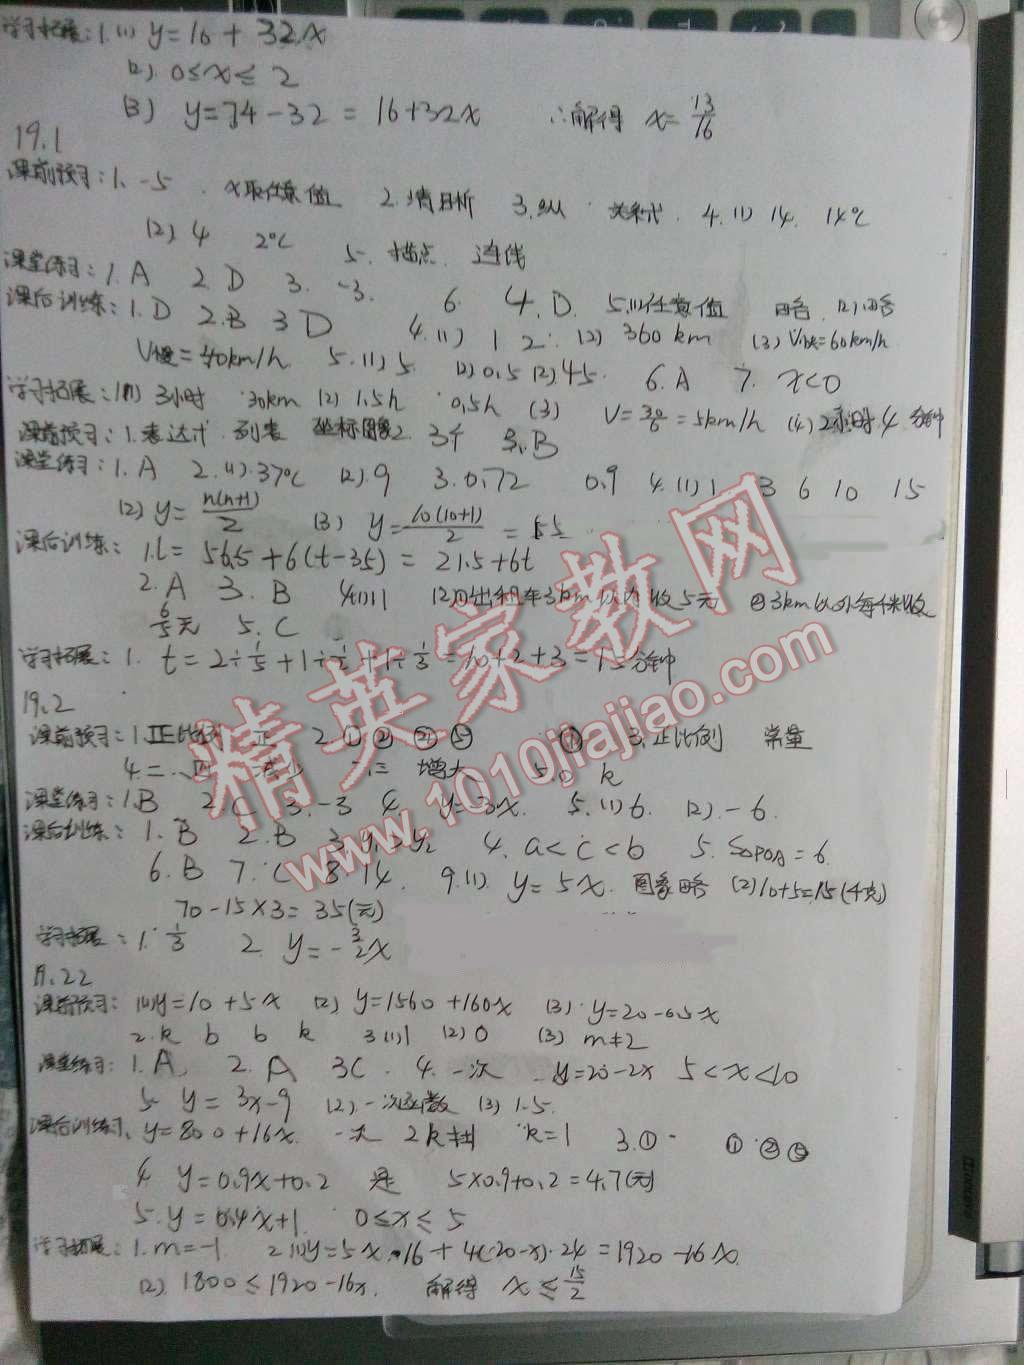 学习拓展:1.(1) y=16+32x
(2) 0≤x≤2
(3) y=74-32=16+32x ∴解得 x=13/16
19.1
课前预习:1、-5 x取任意值 2. 3.纵 关系式 4.(1) 14 14℃
(2) 4 2℃ 5. 描点 连线
课堂练习:1.A 2.D 3. -3. 6. 4.D. 5.(1)任意值 略 (2)略
课后训练:1.D 2.B 3 D 4.(1) 1 2 (2) 360 km (3) V快=60km/h
V慢=40km/h 5.(1)5 (2)0.5 (2)45 6.A 7. x<0
学习拓展:1(1) 3小时 30km (2) 1.5h 0.5h (3) V=30/6=5km/h (4) 2小时 4分钟
课前预习:1.表达式 列表 坐标图象 2. 3个 3.B
课堂练习:1.A 2.(1) 37℃ (2) 9 3.0.72 0.9 4.(1) 1 3 6 10 15
(2) y=n(n+1)/2 (3) y=10(10+1)/2=55
课后训练:1.l=56.5+6(t-35)=21.5+6t
2.A 3.B 4.(1) 1 (2)①出租车3km以内收5元 ②3km以外每千米收
6/5元 5.C
学习拓展:1. t=2÷1/5+1÷1/2+1÷1/3=10+2+3=15分钟
19.2
课前预习:1.正比例 正 2 ①②③⑤ ① 3.正比例 常量
4.二、四 减少 一三 增大 5.0 k
课堂练习:1.B 2.C 3.-3 4. y=-3x. 5.(1)6. (2).-6.
课后训练:1.B 2.B 3 y1>y2 4. a<c<b 5. S△POA=6.
6.B 7.C 8.14. 9.(1). y=5x. 图象略 (2)10+5=15(千克)
70-15×3=35(元)
学习拓展:1.1/3 2. y=-3/2x
19.22
课前预习:1(1)y=10+5x (2) y=1560+160x (3) y=20-0.5x
2.k b b k 3.(1) 1 (2) 0 (3) m≠2
课堂练习:1.A 2.A 3C. 4. 一次 y=20-2x 5<x<10
5 y=3x-9 (2).一次函数 (3) 1.5.
课后训练1. y=800+16x. 一次 2 k≠1 k=1 3.① ①②⑤
4 y=0.9x+0.2 是 5×0.9+0.2=4.7(元)
5.y=0.4x+1 0≤x≤5
学习拓展:1.m=-1 2.(1)y=5x·16+4(20-x)·24=1920-16x.
(2). 1800≤1920-16x. 解得 x≤15/2
精英家教网
www.1010jiajiao.com